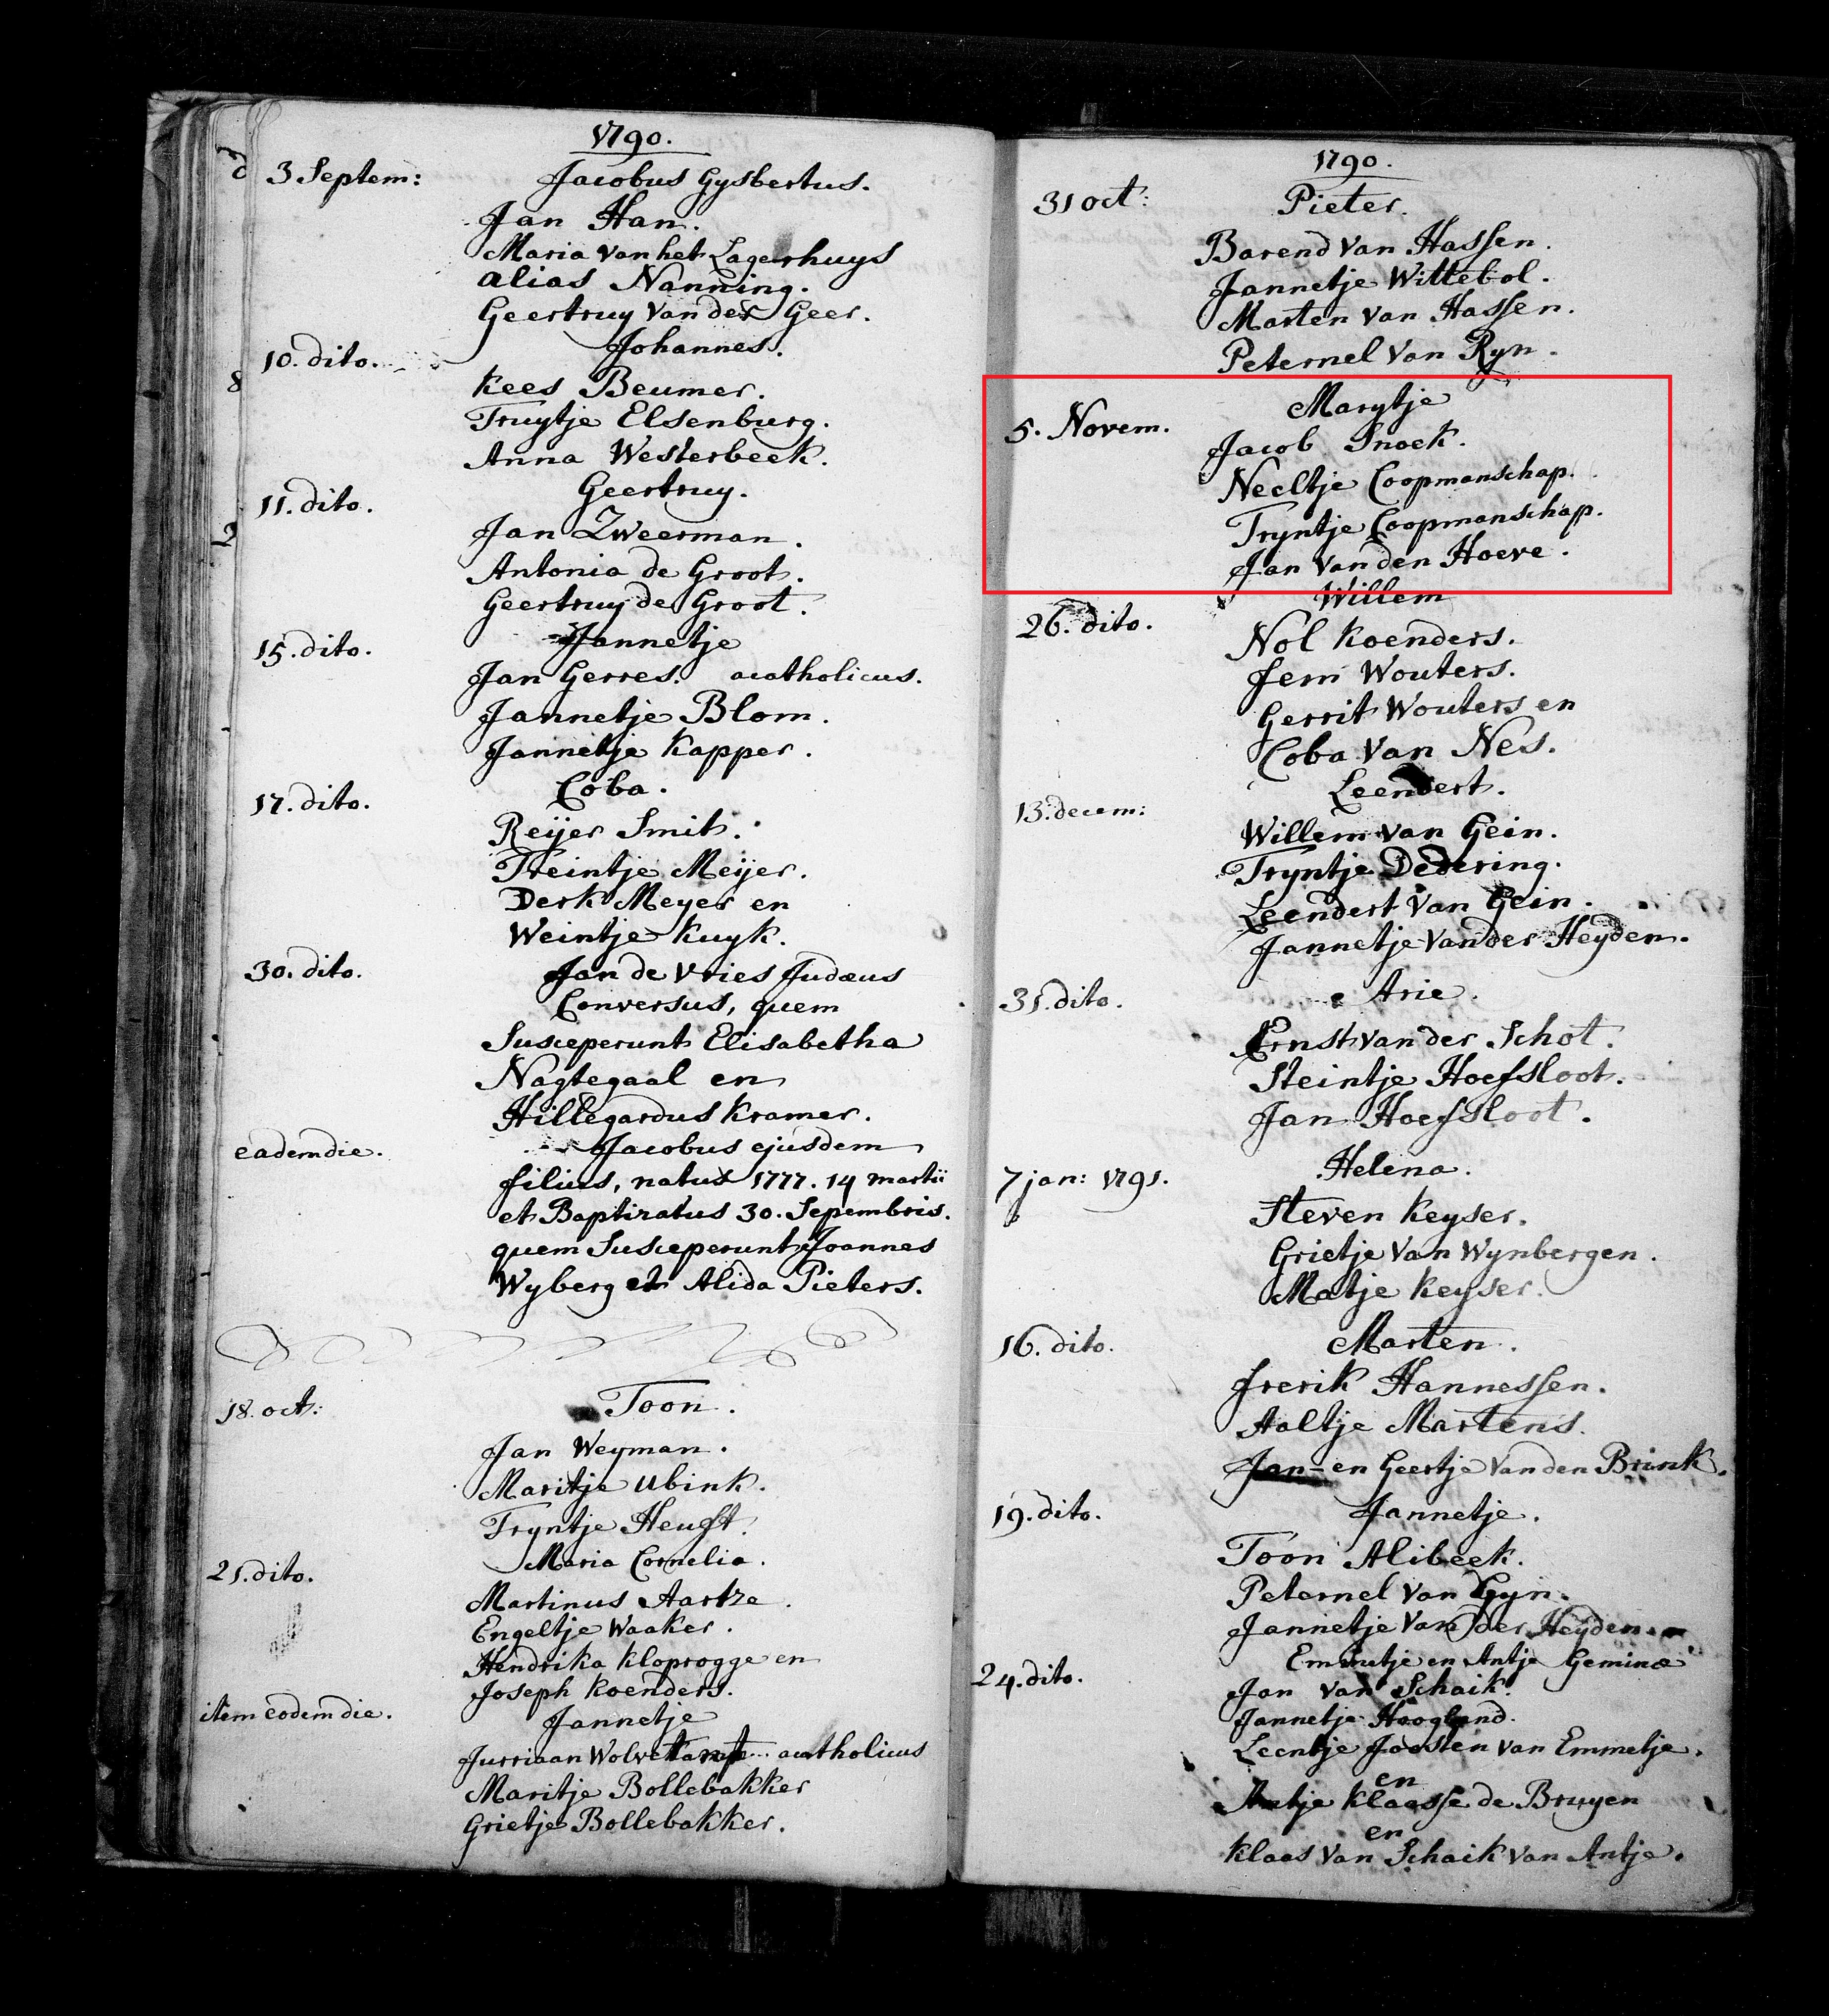 1790.
3 Septem: Jacobus Gysbertus.
Jan Han.
Maria van het Lagerhuys
alias Nanning.
Geertruy van der Geer.
10. dito. Johannes.
Kees Beumer.
Truytje Elsenburg.
Anna Westerbeek.
11. dito. Geertruy.
Jan Zweerman.
Antonia de Groot.
Geertruy de Groot.
15. dito. Jannetje
Jan Gerres. acatholicus.
Jannetje Blom.
Jannetje Kapper.
17. dito. Coba.
Reijer Smit.
Treintje Meijer.
Derk Meyer en
Weintje Kuyk.
30. dito. Jan de Vries Judæus
Conversus, quem
Susceperunt Elisabetha
Nagtegaal en
Hillegardus Kramer.
eadem die. Jacobus ejusdem
filius, natus 1777. 14 martii
et Baptizatus 30. Sepembris.
quem Susceperunt Joannes
Wyberg et Alida Pieters.
18. oct: Toon.
Jan Weyman.
Maritje Ubink.
Tryntje Heuft.
21. dito. Maria Cornelia.
Martinus Aartze.
Engeltje Waaker.
Hendrika Kloprogge en
Joseph Koenders.
item eodem die. Jannetje
Jurriaan acatholicus
Maritje Bollebakker
Grietje Bollebakker.
1790.
31 oct: Pieter.
Barend van Hassen.
Jannetje Wittebol.
Marten van Hassen.
Peternel van Ryn.
5. Novem. Marytje
Jacob Snoek.
Neeltje Coopmanschap.
Tryntje Coopmanschap.
Jan van den Hoeve.
26. dito. Willem
Nol Koenders.
Jem Wouters.
Gerrit Wouters en
Coba van Nes.
13. decem: Leendert.
Willem van Gein.
Tryntje Dedering.
Leendert van Gein.
Jannetje van der Heyden.
31. dito. Arie.
Ernst van der Schot.
Steintje Hoefsloot.
Jan Hoefsloot.
7 jan: 1791. Helena.
Steven Keyser.
Grietje van Wynbergen.
Matje Keyser.
16. dito. Marten.
Frerik Hannessen.
Aaltje Martens.
Jan- en Geertje van den Brink.
19. dito. Jannetje.
Toon Alibeek.
Peternel van Gyn.
Jannetje van der Heyden.
24. dito. Emmetje en Antje Geminæ
Jan van Schaik.
Jannetje Hoogland.
Leentje Joosten van Emmetje.
en
Antje Klaasse de Bruyen
en
Klaas van Schaik van Antje.